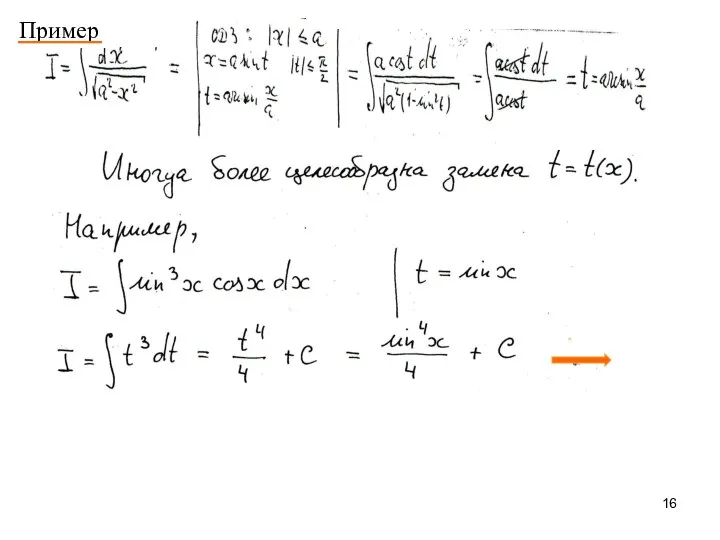 Пример
I = ∫ dx / √(a² - x²) = | ОДЗ: |x| ≤ a x = a sin t |t| ≤ π/2 t = arcsin x/a | = ∫ a cost dt / √(a²(1-sin²t)) = ∫ a cost dt / a cost = t = arcsin x/a
Иногда более целесообразна замена t = t(x).
Например,
I = ∫ sin³x cosx dx | t = sin x
I = ∫ t³ dt = t⁴/4 + C = sin⁴x/4 + C
16